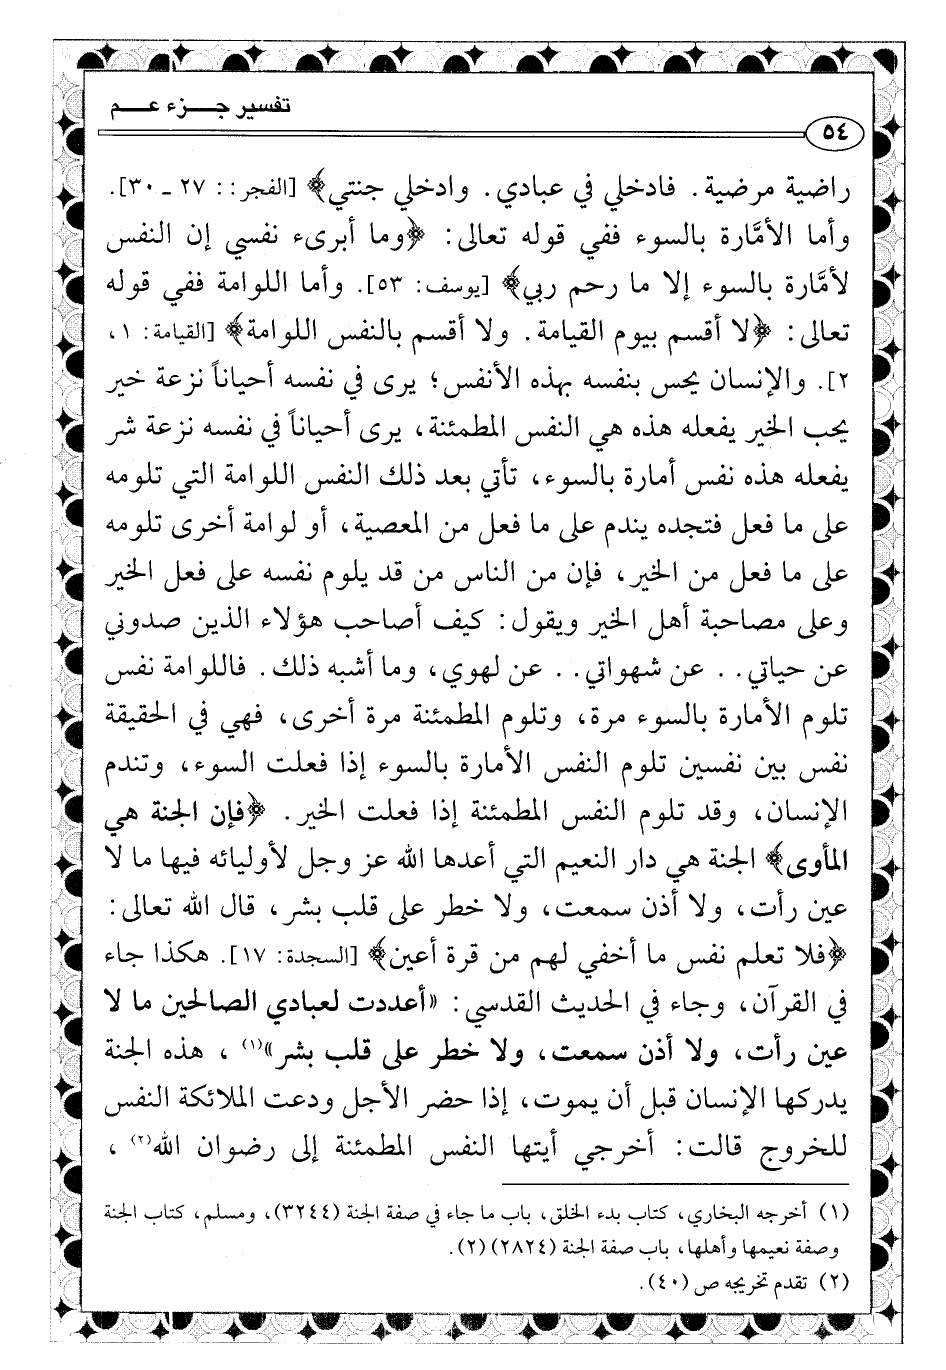 تفسير جـــزء عـــم
٥٤
راضية مرضية. فادخلي في عبادي. وادخلي جنتي﴾ [الفجر:: ٢٧ ـ ٣٠].
وأما الأمَّارة بالسوء ففي قوله تعالى: ﴿وما أبرىء نفسي إن النفس
لأمَّارة بالسوء إلا ما رحم ربي﴾ [يوسف: ٥٣]. وأما اللوامة ففي قوله
تعالى: ﴿لا أقسم بيوم القيامة. ولا أقسم بالنفس اللوامة﴾ [القيامة: ١،
٢]. والإنسان يحس بنفسه بهذه الأنفس؛ يرى في نفسه أحياناً نزعة خير
يحب الخير يفعله هذه هي النفس المطمئنة، يرى أحياناً في نفسه نزعة شر
يفعله هذه نفس أمارة بالسوء، تأتي بعد ذلك النفس اللوامة التي تلومه
على ما فعل فتجده يندم على ما فعل من المعصية، أو لوامة أخرى تلومه
على ما فعل من الخير، فإن من الناس من قد يلوم نفسه على فعل الخير
وعلى مصاحبة أهل الخير ويقول: كيف أصاحب هؤلاء الذين صدوني
عن حياتي.. عن شهواتي.. عن لهوي، وما أشبه ذلك. فاللوامة نفس
تلوم الأمارة بالسوء مرة، وتلوم المطمئنة مرة أخرى، فهي في الحقيقة
نفس بين نفسين تلوم النفس الأمارة بالسوء إذا فعلت السوء، وتندم
الإنسان، وقد تلوم النفس المطمئنة إذا فعلت الخير. ﴿فإن الجنة هي
المأوى﴾ الجنة هي دار النعيم التي أعدها الله عز وجل لأوليائه فيها ما لا
عين رأت، ولا أذن سمعت، ولا خطر على قلب بشر، قال الله تعالى:
﴿فلا تعلم نفس ما أخفي لهم من قرة أعين﴾ [السجدة: ١٧]. هكذا جاء
في القرآن، وجاء في الحديث القدسي: «أعددت لعبادي الصالحين ما لا
عين رأت، ولا أذن سمعت، ولا خطر على قلب بشر»(١)، هذه الجنة
يدركها الإنسان قبل أن يموت، إذا حضر الأجل ودعت الملائكة النفس
للخروج قالت: أخرجي أيتها النفس المطمئنة إلى رضوان الله(٢)،
(١) أخرجه البخاري، كتاب بدء الخلق، باب ما جاء في صفة الجنة (٣٢٤٤)، ومسلم، كتاب الجنة
وصفة نعيمها وأهلها، باب صفة الجنة (٢٨٢٤) (٢).
(٢) تقدم تخريجه ص (٤٠).